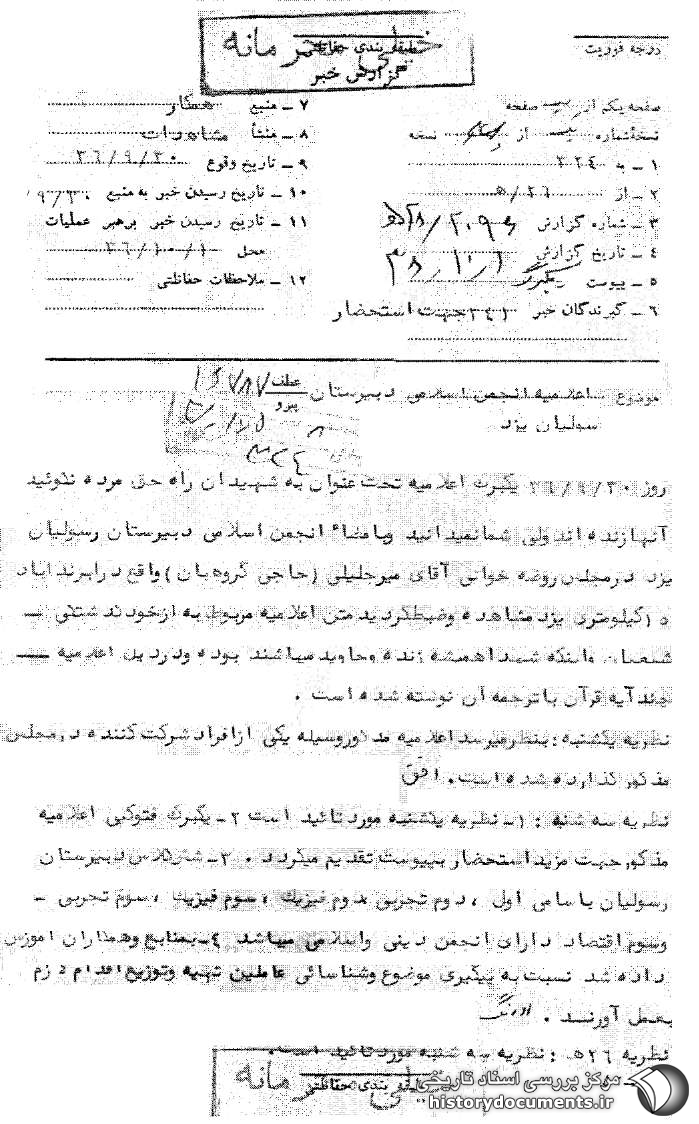 خیلی محرمانه
طبقه بندی حفاظتی
گزارش خبر
درجه فوریت
صفحه یکم از یک صفحه
نسخه شماره از نسخه
۱ ـ به ۳۲۴
۲ ـ از ۲۶/ه
۳ ـ شماره گزارش
۴ ـ تاریخ گزارش
۵ ـ پیوست
۶ ـ گیرندگان خبر ۳۴۱ جهت استحضار
۷ ـ منبع همکار
۸ ـ منشأ مشاهدات
۹ ـ تاریخ وقوع ۳۶/۹/۳۰
۱۰ ـ تاریخ رسیدن خبر به منبع ۹/۳۰
۱۱ ـ تاریخ رسیدن خبر برهبر عملیات
محل ۳۶/۱۰/۱
۱۲ ـ ملاحظات حفاظتی
موضوع اعلامیه انجمن اسلامی دبیرستان
عطف
پیرو
رسولیان یزد
روز ۳۶/۹/۳۰ یکبرگ اعلامیه تحت عنوان به شهیدان راه حق مرده نگوئید
آنها زنده اند ولی شما نمیدانید و بامضاء انجمن اسلامی دبیرستان رسولیان
یزد در مجلس روضه خوانی آقای میرجلیلی (حاجی گروهبان) واقع در ابرندآباد
۱۵ کیلومتری یزد مشاهده و ضبط گردید متن اعلامیه مربوط به از خود گذشتگی ـ
شیعیان و اینکه شهدا همیشه زنده و جاوید میباشند بوده و در ذیل اعلامیه ـ
چند آیه قرآن با ترجمه آن نوشته شده است .
نظریه یکشنبه : بنظر میرسد اعلامیه مذکور وسیله یکی از افراد شرکت کننده در مجلس
مذکور گذارده شده است. افق
نظریه سه شنبه : ۱ـ نظریه یکشنبه مورد تائید است ۲ـ یکبرگ فتوکپی اعلامیه
مذکور جهت مزید استحضار بپیوست تقدیم میگردد . ۳ـ شش کلاس دبیرستان
رسولیان باسامی اول ، دوم تجربی ، دوم فیزیک ، سوم فیزیک ، سوم تجربی ـ
وسوم اقتصاد دارای انجمن دینی و اسلامی میباشد ۴ـ بمنابع و همکاران آموزش
داده شد نسبت به پیگیری موضوع و شناسائی عاملین تهیه و توزیع اقدام لازم
بعمل آورند .
نظریه ۲۶ه : نظریه سه شنبه مورد تائید است.
خیلی محرمانه
طبقه بندی حفاظتی
مرکز بررسی اسناد تاریخی
historydocuments.ir